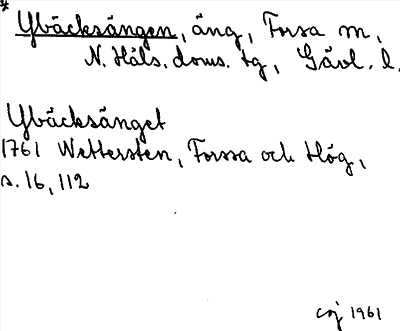 * Ybäcksängen, äng, Forsa sn,
N. Häls. doms. tg, Gävl. l.
Ybäcksänget
1761 Wettersten, Forssa och Hög,
s. 16, 112
1961